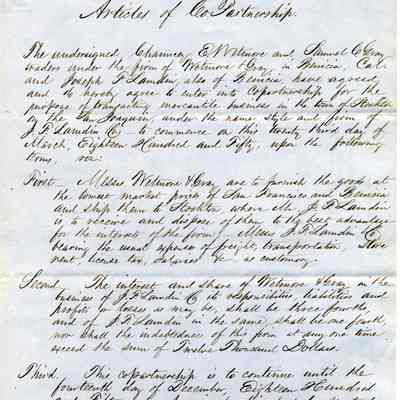 Articles of Co Partnership.
The undersigned, Chauncey E. Wetmore and Samuel C Gray
traders under the firm of Wetmore & Gray, in Benicia, Cal.
and Joseph F Lamdin also of Benicia, have agreed
and do hereby agree to enter into Copartnership for the
purpose of transacting mercantile business in the town of Stockton
on the San Joaquin, under the name style and firm of
J. F Lamdin Co - to commence on this twenty third day of
March, Eighteen Hundred and Fifty, upon the following
terms, viz:
First - Messrs Wetmore & Gray are to furnish the goods at
the lowest market price of San Francisco and Benicia
and ship them to Stockton when Mr. J. F Lamdin
is to receive and dispose of them to the best advantage
for the interest of the firm - Messrs J F Lamdin Co
bearing the usual expenses of freight, transportation, store
rent, license tax, salaries &c as customary.
Second. The interest and share of Wetmore & Gray in the
business of J. F Lamdin Co its responsibilities, liabilities and
profits or losses as may be, shall be three fourths
and of J. F Lamdin in the same, shall be one fourth,
nor shall the indebtedness of the firm at any one time
exceed the sum of Twelve Thousand Dollars.
Third. This copartnership is to continue until the
fourteenth day of December, Eighteen Hundred
and Fifty